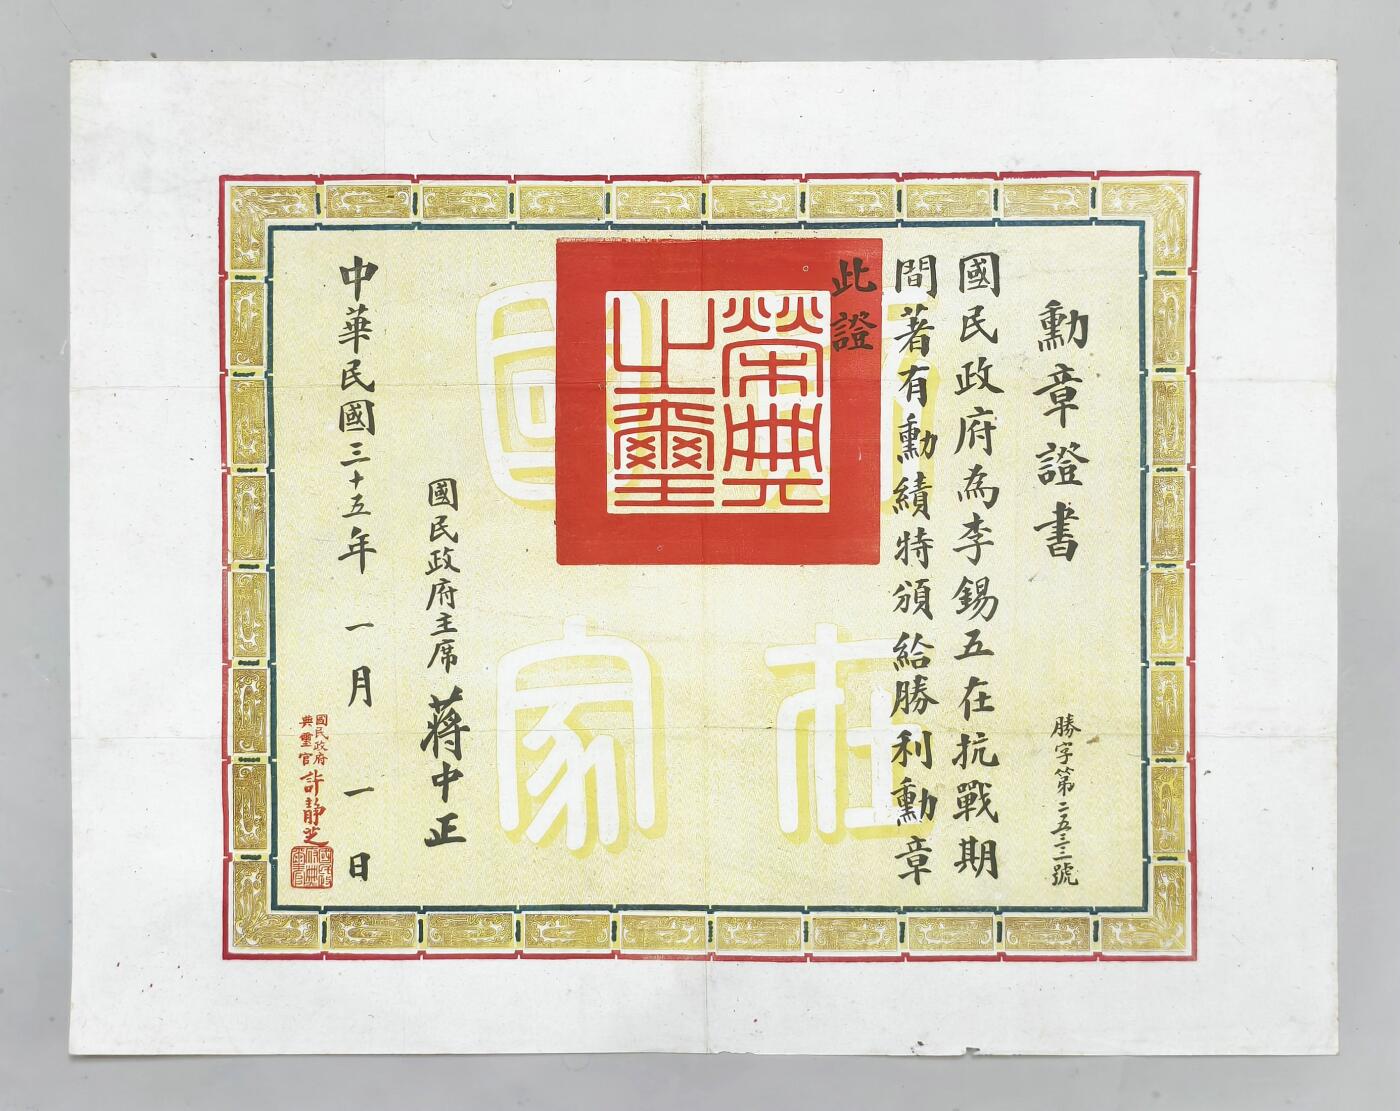 勳章證書
勝字第二五三三號
國民政府為李錫五在抗戰期
間著有勳績特頒給勝利勳章
此證
榮典之璽
國民政府主席 蔣中正
中華民國三十五年 一月 一日
國民政府
典璽官 許靜芝
在
國家